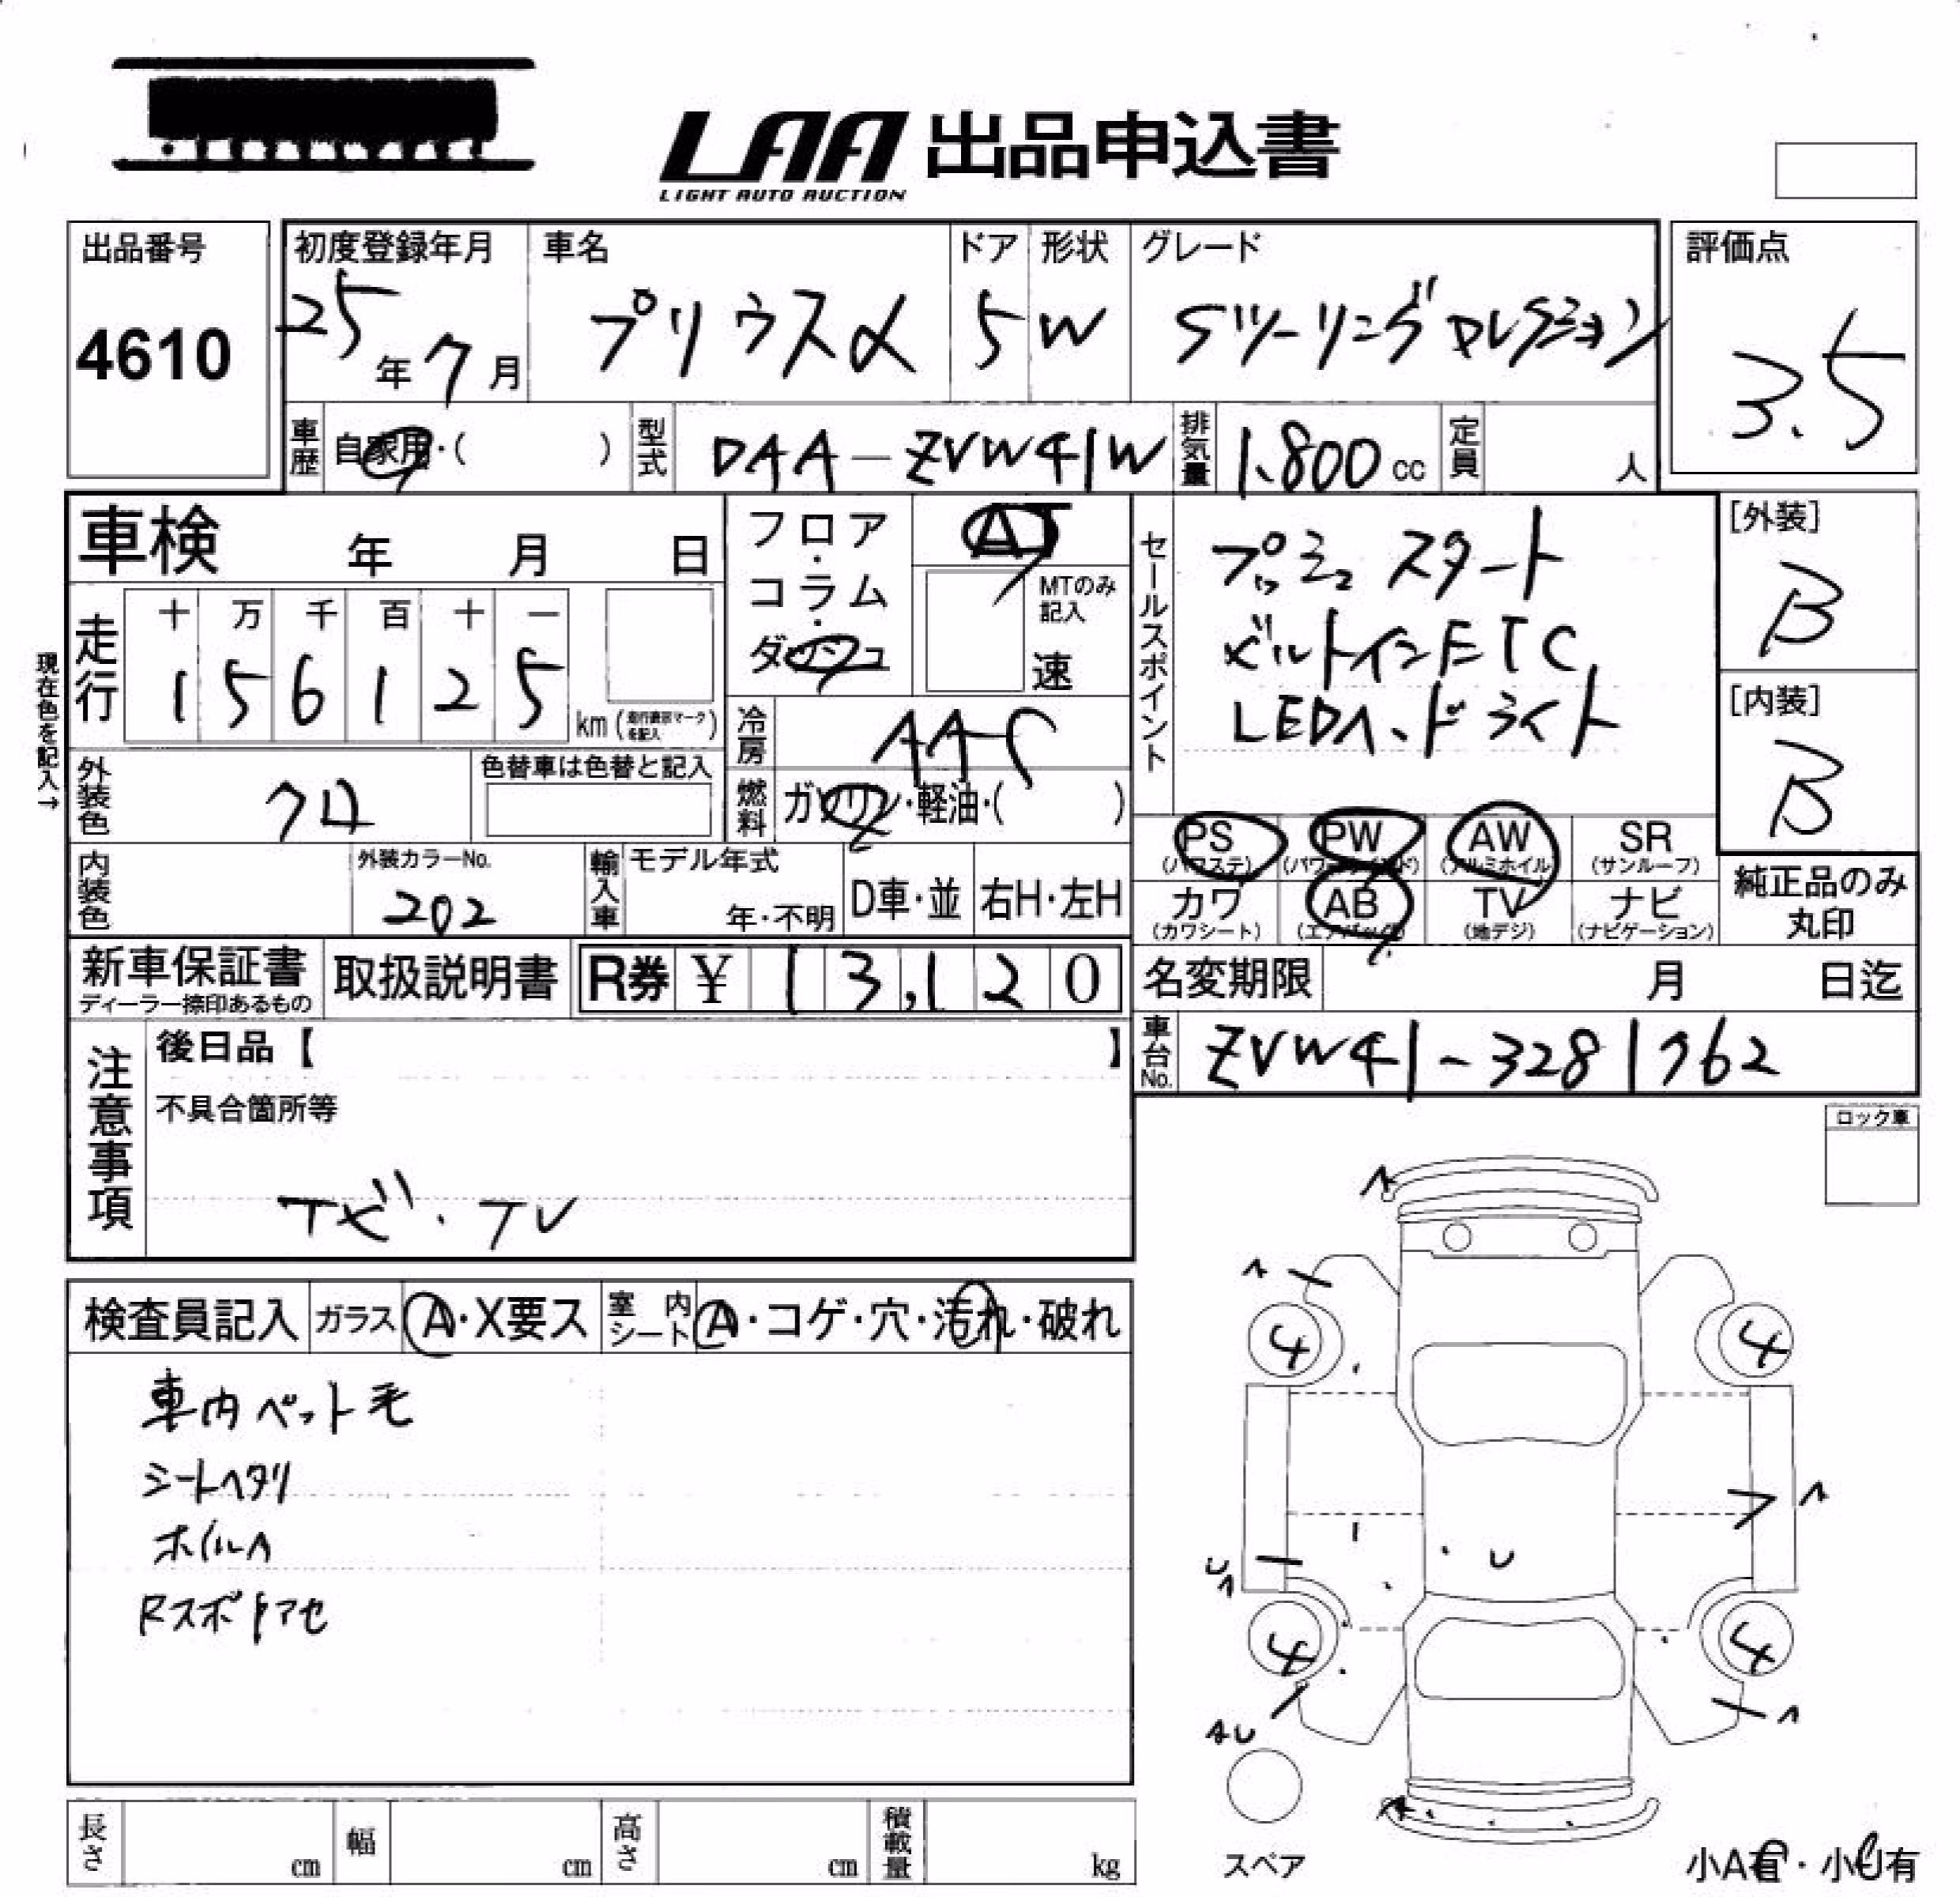 LAA 出品申込書
LIGHT AUTO AUCTION
出品番号
4610
初度登録年月
25年7月
車名
プリウスα
ドア
5
形状
W
グレード
Sツーリングセレクション
評価点
3.5
車歴
自家用・( )
型式
DAA-ZVW41W
排気量
1.800cc
定員
人
車検 年 月 日
現在色を記入→
走行
十 万 千 百 十 一
1 5 6 1 2 5
km(走行表示マークを記入)
フロア・コラム・ダッシュ
AT
MTのみ記入
速
冷房
AAC
燃料
ガソリン・軽油・( )
外装色
クロ
色替車は色替と記入
内装色
外装カラーNo.
202
輸入車
モデル年式
年・不明
D車・並
右H・左H
セールスポイント
プッシュスタート
ビルトインETC
LEDヘッドライト
[外装]
B
[内装]
B
PS (パワステ)
PW (パワーウィンド)
AW (アルミホイル)
SR (サンルーフ)
カワ (カワシート)
AB (エアバック)
TV (地デジ)
ナビ (ナビゲーション)
純正品のみ丸印
新車保証書
ディーラー捺印あるもの
取扱説明書
R券 ¥ 13,120
名変期限 月 日迄
車台No.
ZVW41-3281762
注意事項
後日品【 】
不具合箇所等
ナビ・TV
ロック車
検査員記入
ガラス
A・X要ス
室内シート
A・コゲ・穴・汚れ・破れ
車内ペット毛
シートヘタリ
ホイルA
RスポイラアセA
A
A
4
4
A
U
U
A
4
4
AU
A
A
スペア
小A有・小U有
長さ cm
幅 cm
高さ cm
積載量 kg